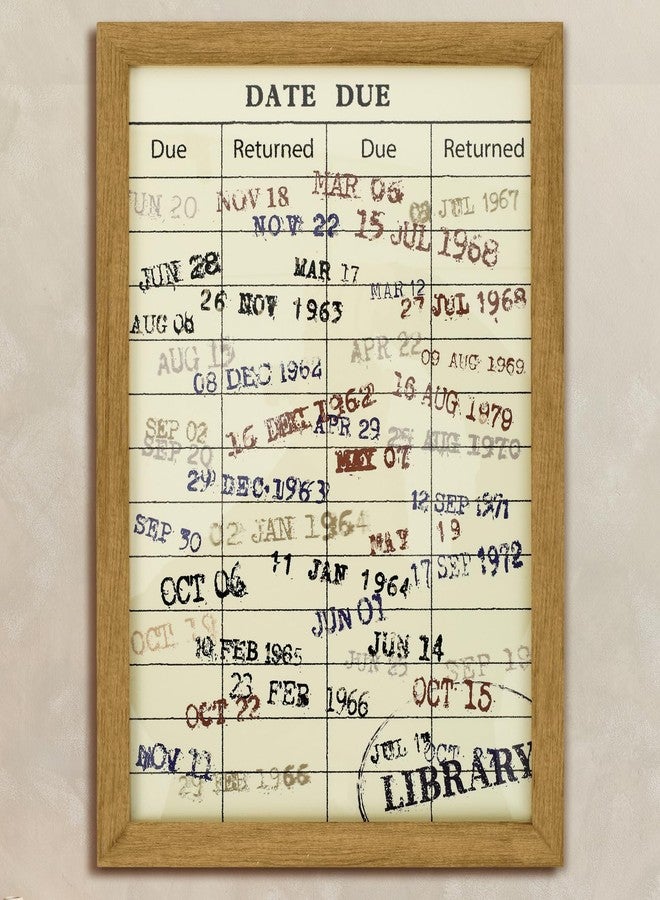 DATE DUE
Due Returned Due Returned
JUN 20 NOV 18 MAR 06 03 JUL 1967
NOV 22 15 JUL 1968
JUN 28 MAR 17
26 NOV 1963 MAR 12 27 JUL 1968
AUG 08
AUG 15 APR 22 09 AUG 1969
08 DEC 1962
16 DEC 1962 16 AUG 1979
SEP 02 APR 29 25 AUG 1970
SEP 20 MAY 07
29 DEC 1963 12 SEP 1971
SEP 30 02 JAN 1964 MAY 19
OCT 06 11 JAN 1964 17 SEP 1972
JUN 01
OCT 19 10 FEB 1965 JUN 14
JUN 25 SEP 19
OCT 22 23 FEB 1966 OCT 15
NOV 11 JUL 13 OCT
29 FEB 1966 LIBRARY